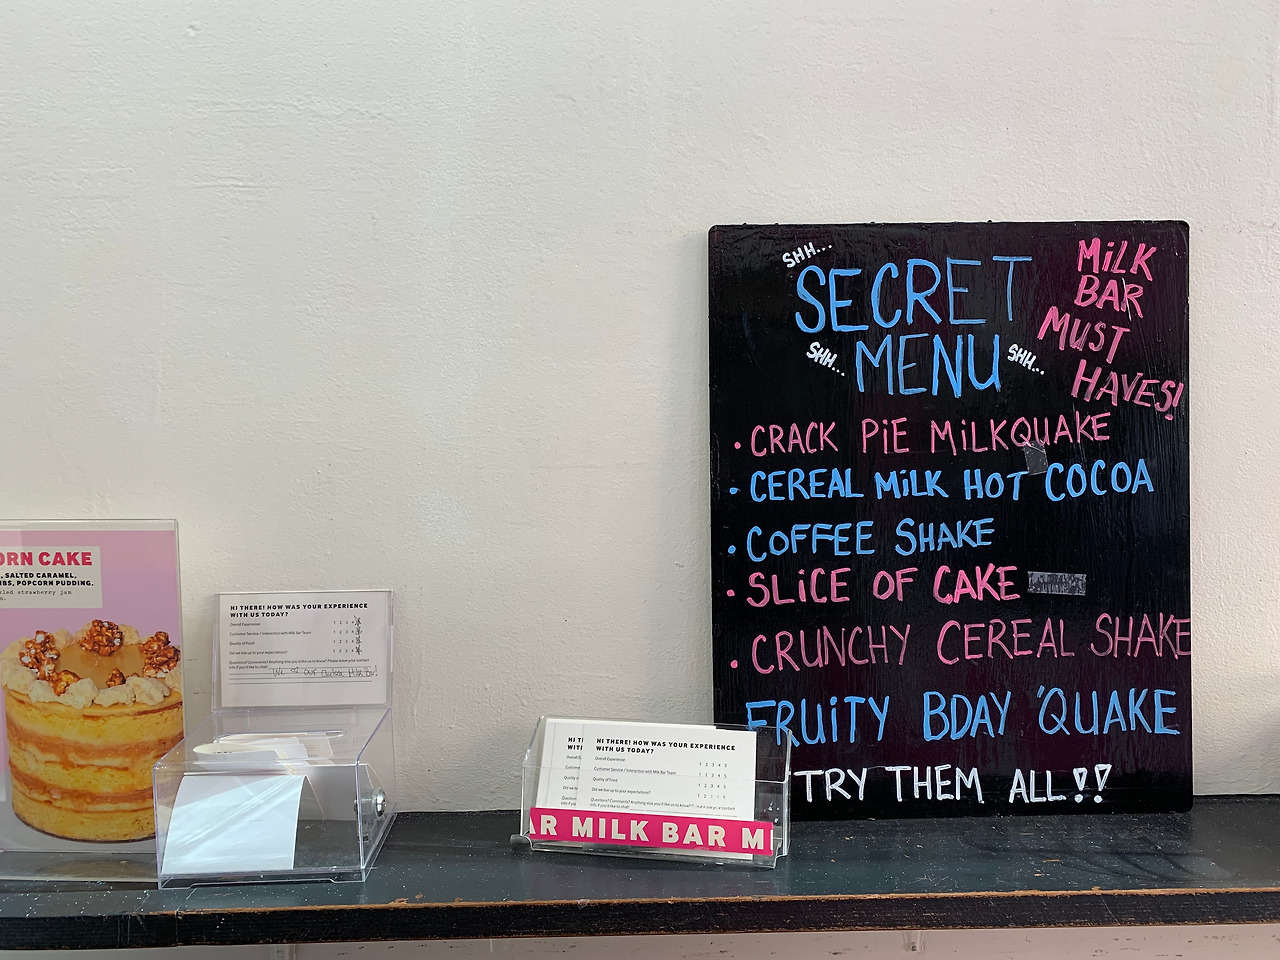 ORN CAKE
, SALTED CARAMEL,
BS, POPCORN PUDDING.
led strawberry jam
n.
HI THERE! HOW WAS YOUR EXPERIENCE
WITH US TODAY?
Overall Experience
1 2 3 4
Customer Service / Interaction with Milk Bar Team
1 2 3 4
Quality of Food
1 2 3 4
Did we live up to your expectations?
1 2 3 4
Questions? Comments? Anything else you'd like us to know? Please leave your contact
info if you'd like to chat!
We our Milk Bar!
HI T
WITH
Overall E
Custome
Quality o
Did we li
HI THERE! HOW WAS YOUR EXPERIENCE
WITH US TODAY?
Overall Experience
1 2 3 4 5
Customer Service / Interaction with Milk Bar Team
1 2 3 4 5
Quality of Food
1 2 3 4 5
Did we live up to your expectations?
1 2 3 4 5
AR MILK BAR M
SHH...
SECRET
SHH... MENU SHH...
MiLK
BAR
MUST
HAVES!
• CRACK PiE MiLKQUAKE
• CEREAL MiLK HOT COCOA
• COFFEE SHAKE
• SLiCE OF CAKE
• CRUNCHY CEREAL SHAKE
FRUiTY BDAY 'QUAKE
TRY THEM ALL!!